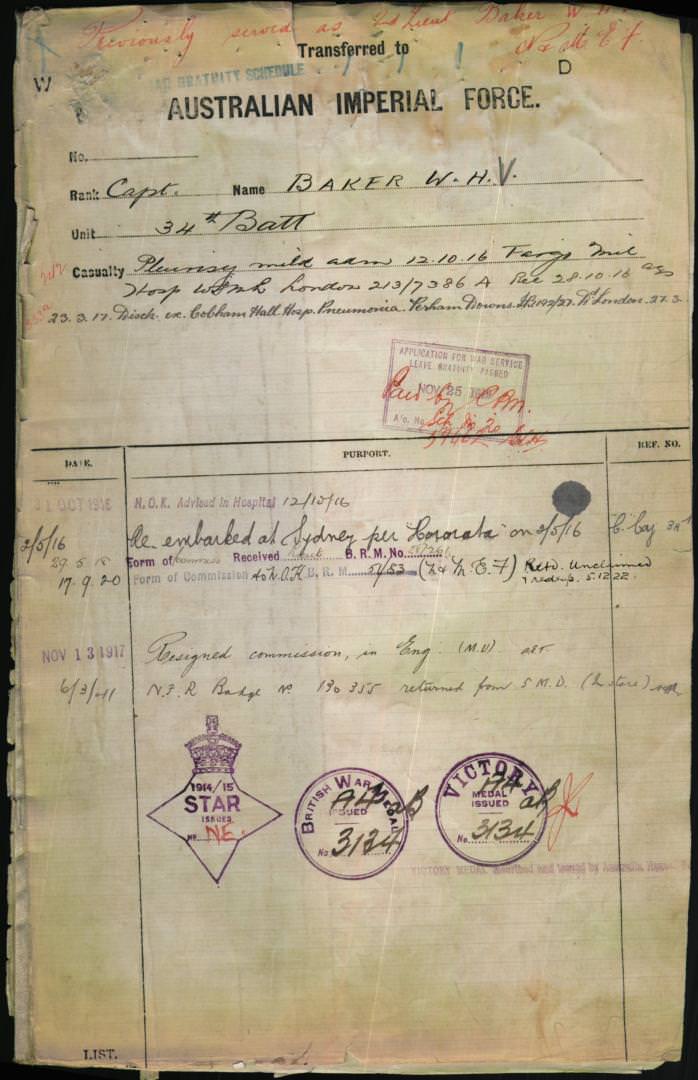 Previously served as 2nd Lieut Baker W. H.
N & M E F.
Transferred to
WAR GRATUITY SCHEDULE
W D
AUSTRALIAN IMPERIAL FORCE.
No.
Rank Capt. Name BAKER W. H. V.
Unit 34th Batt
Casualty Pleurisy mild adm 12.10.16 Mil
Hosp London 213/7386 A Rec 28.10.16
23.3.17. Disch. ex. Cobham Hall Hosp. Pneumonia. Perham Downs. London. 27.3.
APPLICATION FOR WAR SERVICE
LEAVE GRATUITY PASSED
NOV 25
Paid by
A/c. No.
DATE. PURPORT. REF. NO.
31 OCT 1916 N.O.K. Advised in Hospital 12/10/16
2/5/16 He embarked at Sydney per "Hororata" on 2/5/16 "C" Coy
Form of Received B. R. M. No.
17.9.20 Form of Commission to N.O.K B. R. M. 51/53 (N & M. E. F) Retd. Unclaimed
5.12.22.
NOV 13 1917 Resigned commission, in Eng. (M.U)
6/3/41 Badge No 130355 returned from 5 M.D. (In store)
1914/15
STAR
ISSUED
No. NE.
BRITISH WAR MEDAL
ISSUED
No 3134
VICTORY
MEDAL
ISSUED
No. 3134
VICTORY MEDAL and issued by Australia House
LIST.